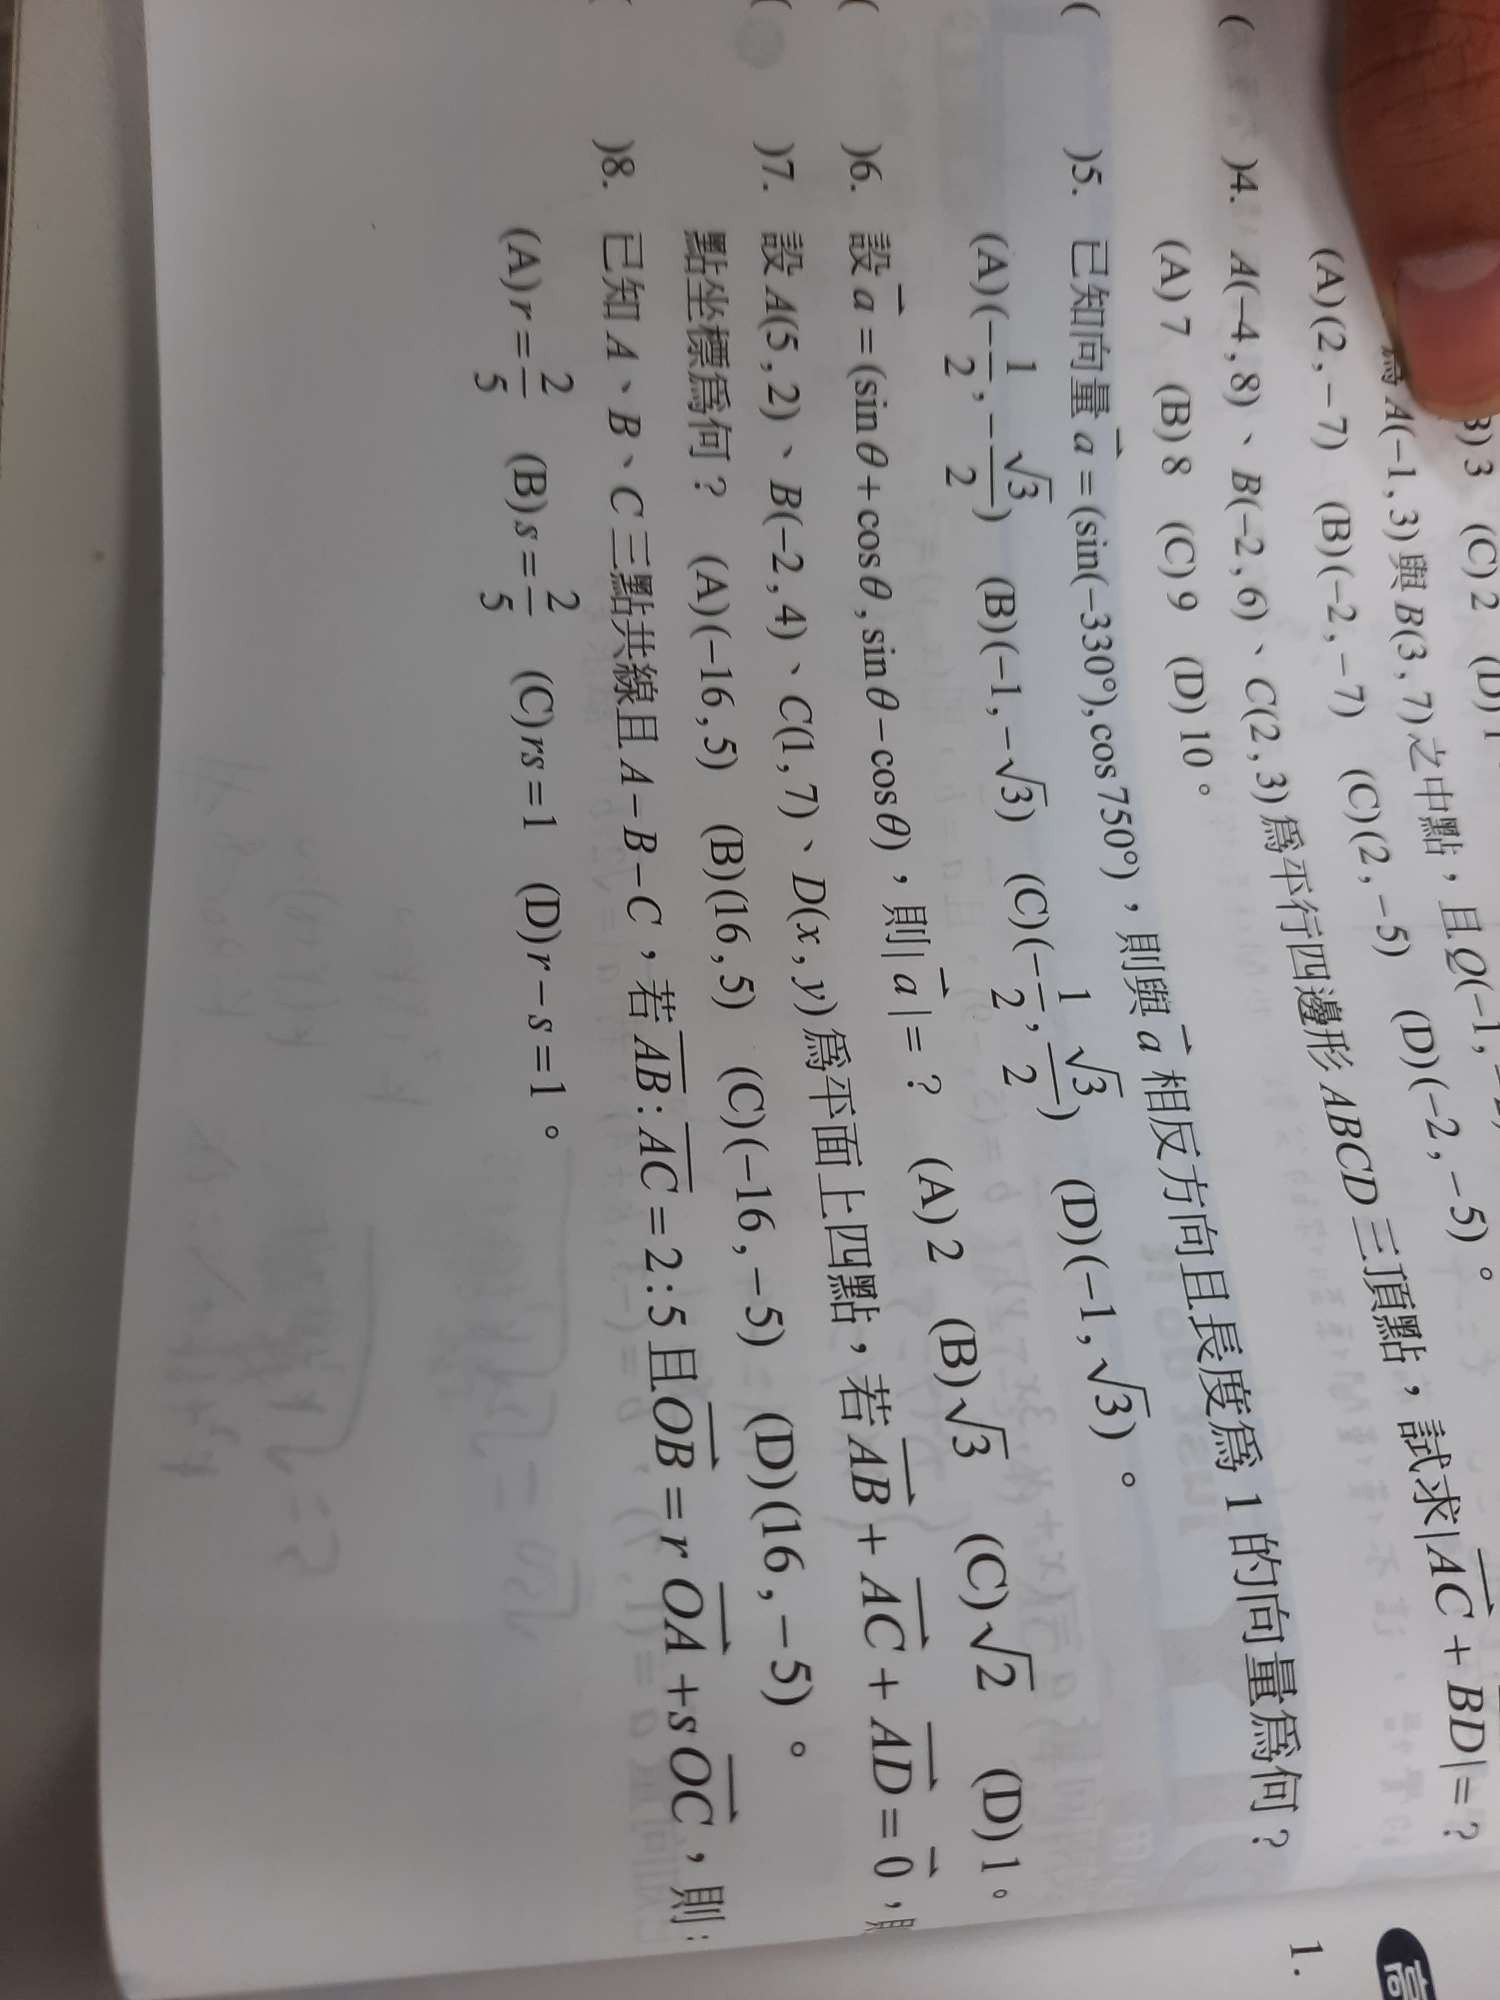 B) 3 (C) 2 (D) 1
為 A(−1 , 3) 與 B(3 , 7) 之中點，且 Q(−1 ,
(A) (2 , −7) (B) (−2 , −7) (C) (2 , −5) (D) (−2 , −5)。
( )4. A(−4 , 8)、B(−2 , 6)、C(2 , 3) 為平行四邊形 ABCD 三頂點，試求 |\overrightarrow{AC} + \overrightarrow{BD}| = ？
(A) 7 (B) 8 (C) 9 (D) 10。
( )5. 已知向量 \overrightarrow{a} = (sin(−330°), cos 750°)，則與 \overrightarrow{a} 相反方向且長度為 1 的向量為何？
(A) (−\frac{1}{2} , −\frac{√3}{2}) (B) (−1 , −√3) (C) (−\frac{1}{2} , \frac{√3}{2}) (D) (−1 , √3)。
( )6. 設 \overrightarrow{a} = (sin θ + cos θ , sin θ − cos θ)，則 |\overrightarrow{a}| = ？ (A) 2 (B) √3 (C) √2 (D) 1。
( )7. 設 A(5 , 2)、B(−2 , 4)、C(1 , 7)、D(x , y) 為平面上四點，若 \overrightarrow{AB} + \overrightarrow{AC} + \overrightarrow{AD} = \overrightarrow{0}，
點坐標為何？ (A) (−16 , 5) (B) (16 , 5) (C) (−16 , −5) (D) (16 , −5)。
( )8. 已知 A、B、C 三點共線且 A − B − C，若 \overline{AB} : \overline{AC} = 2 : 5 且 \overrightarrow{OB} = r \overrightarrow{OA} + s \overrightarrow{OC}，則：
(A) r = \frac{2}{5} (B) s = \frac{2}{5} (C) rs = 1 (D) r − s = 1。
1.